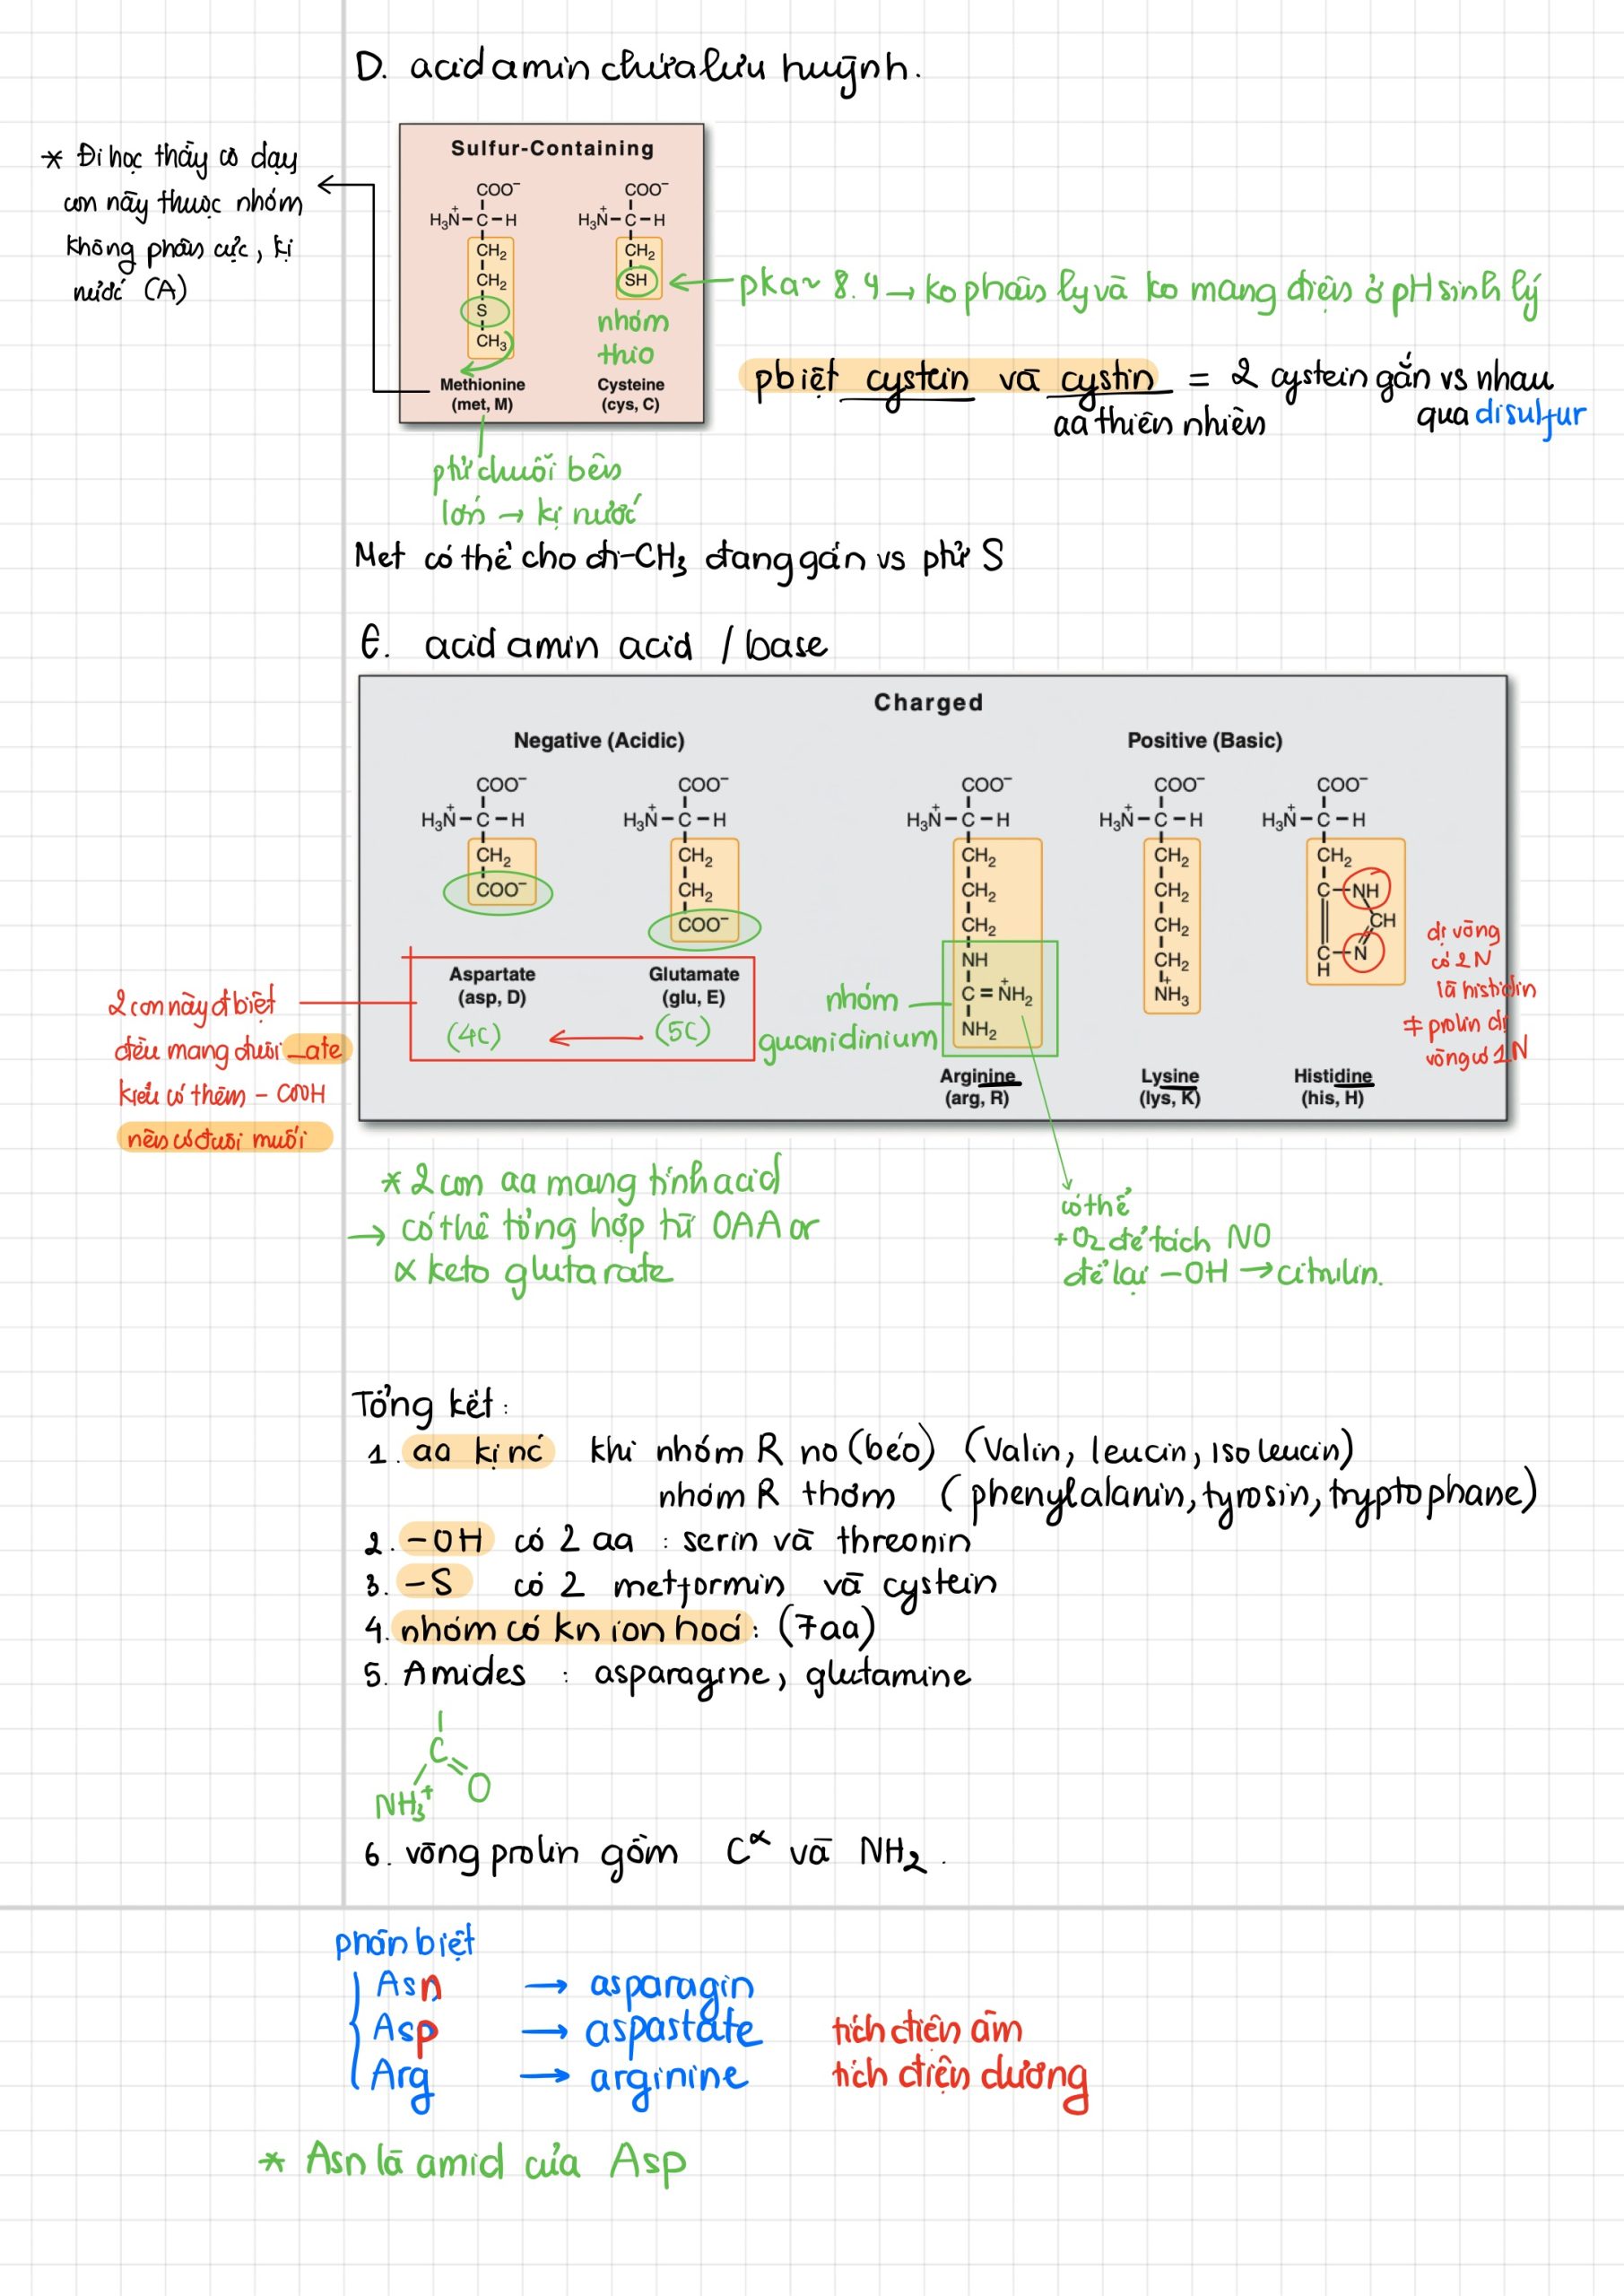 D. acid amin chứa lưu huỳnh.
* Đi học thầy cô dạy
con này thuộc nhóm
không phân cực, kị
nước (A)
Sulfur-Containing
COO⁻ COO⁻
H₃N⁺–C–H H₃N⁺–C–H
CH₂ CH₂
CH₂ SH
S
CH₃
nhóm
thio
Methionine Cysteine
(met, M) (cys, C)
pka~ 8.4 → ko phân ly và ko mang điện ở pH sinh lý
pbiệt cystein và cystin = 2 cystein gắn vs nhau
aa thiên nhiên qua disulfur
phử chuỗi bên
lớn → kị nước
Met có thể cho đi -CH₃ đang gắn vs phử S
E. acid amin acid / base
Charged
Negative (Acidic) Positive (Basic)
COO⁻ COO⁻ COO⁻ COO⁻ COO⁻
H₃N⁺–C–H H₃N⁺–C–H H₃N⁺–C–H H₃N⁺–C–H H₃N⁺–C–H
CH₂ CH₂ CH₂ CH₂ CH₂
COO⁻ CH₂ CH₂ CH₂ C–NH
COO⁻ CH₂ CH₂ CH
NH CH₂ C–N
C=N⁺H₂ N⁺H₃ H
NH₂
Aspartate Glutamate
(asp, D) (glu, E)
(4C) ← (5C)
nhóm
guanidinium
Arginine Lysine Histidine
(arg, R) (lys, K) (his, H)
dị vòng
có 2N
là histidin
≠ prolin dị
vòng có 1N
2 con này đbiệt
đều mang đuôi _ate
kiểu có thêm – COOH
nên có đuôi muối
* 2 con aa mang tính acid
→ có thể tổng hợp từ OAA or
α keto glutarate
có thể
+ O₂ để tách NO
để lại –OH → citrulin.
Tổng kết:
1. aa kị nc khi nhóm R no (béo) (Valin, leucin, Iso leucin)
nhóm R thơm (phenylalanin, tyrosin, tryptophane)
2. -OH có 2 aa : serin và threonin
3. -S có 2 metformin và cystein
4. nhóm có kn ion hoá: (7aa)
5. Amides : asparagine, glutamine
C
NH₃⁺ O
6. vòng prolin gồm Cᵅ và NH₂.
phân biệt
Asn → asparagin
Asp → aspastate tích điện âm
Arg → arginine tích điện dương
* Asn là amid của Asp